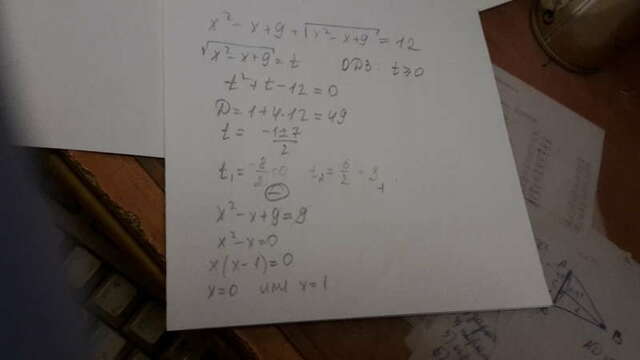 x² - x + 9 + √x² - x + 9 = 12
√x² - x + 9 = t ОДЗ: t ≥ 0
t² + t - 12 = 0
D = 1 + 4·12 = 49
t = -1±7/2
t₁ = -8/2 < 0 t₂ = 6/2 = 3
x² - x + 9 = 9
x² - x = 0
x(x - 1) = 0
x = 0 или x = 1